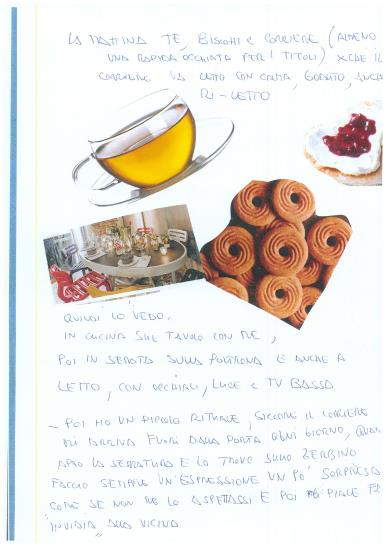 LA MATTINA TE, BISCOTTI E CORRIERE, (ALMENO
UNA RAPIDA OCCHIATA PER I TITOLI) XCHE IL
CORRIERE VA LETTO CON CALMA, GODUTO, ANCHE
RI-LETTO
QUINDI LO VEDO.
IN CUCINA SUL TAVOLO CON ME,
POI IN SERATA SULLA POLTRONA E ANCHE A
LETTO, CON OCCHIALI, LUCE E TV BASSA
- POI HO UN PICCOLO RITUALE, SICCOME IL CORRIERE
MI ARRIVA FUORI DALLA PORTA OGNI GIORNO, QUAN
APRO LA SERRATURA E LO TROVO SULLO ZERBINO
FACCIO SEMPRE UN'ESPRESSIONE UN PO' SORPRESA
COME SE NON ME LO ASPETTASSI E POI MI PIACE FA
"INVIDIA" ALLA VICINA